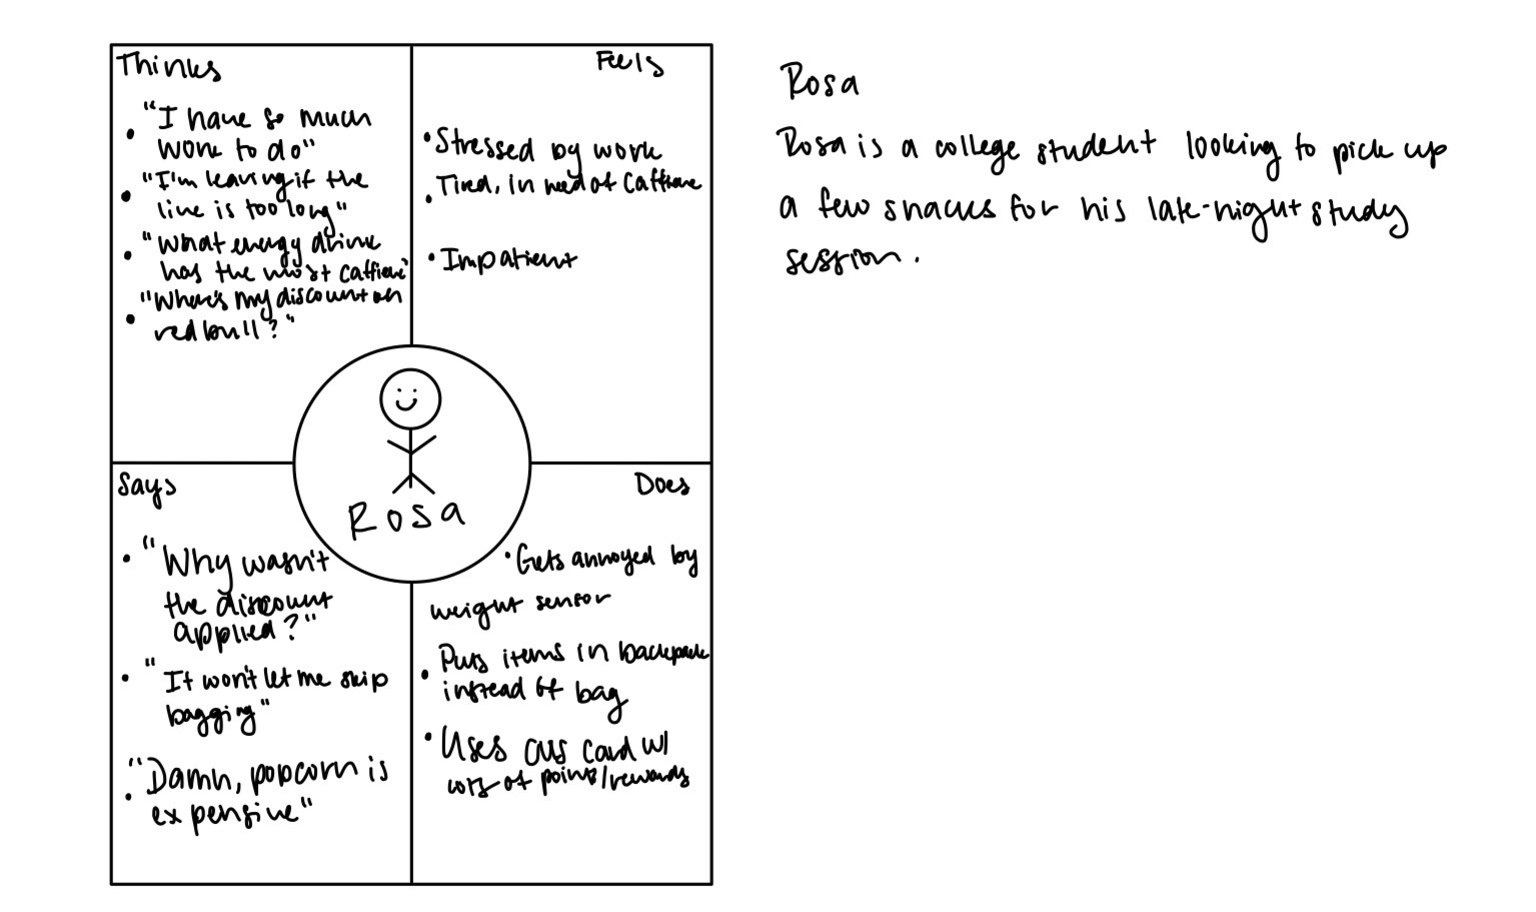 Thinks
• "I have so much
work to do"
• "I'm leaving if the
line is too long"
• "What energy drink
has the most caffiene"
• "Where's my discount on
red bull?"
Feels
• Stressed by work
• Tired, in need of caffiene
• Impatient
Rosa
Says
• "Why wasn't
the discount
applied?"
• "It won't let me skip
bagging"
• "Damn, popcorn is
expensive"
Does
• Gets annoyed by
weight sensor
• Puts items in backpack
instead of bag
• Uses CVS card w/
lots of points/rewards
Rosa
Rosa is a college student looking to pick up
a few snacks for his late-night study
session.